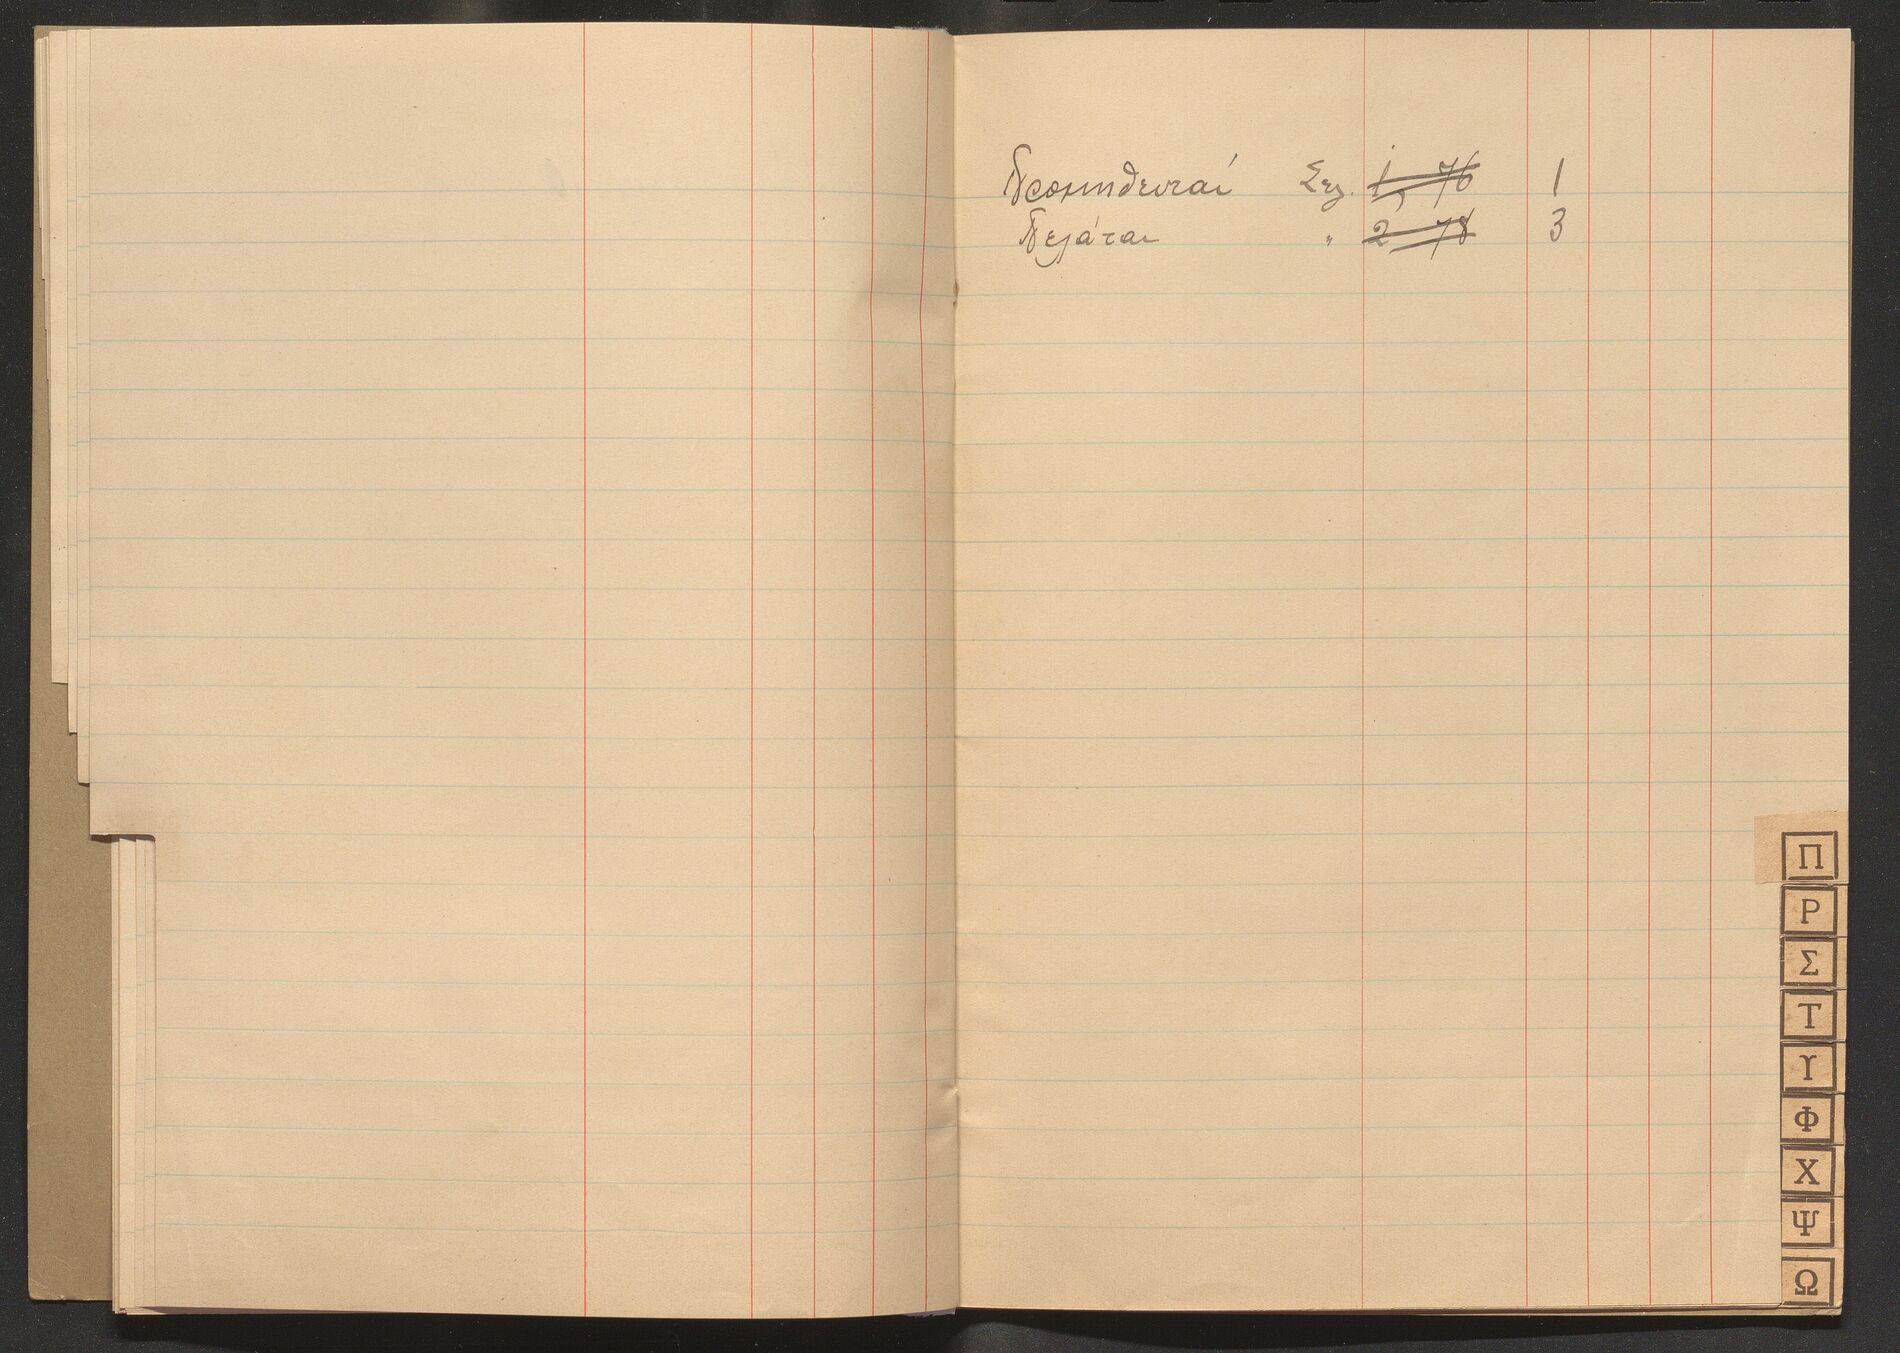 Προμηθευταί Σελ. 1, 76 1
Πελάται " 2 78 3
Π
Ρ
Σ
Τ
Υ
Φ
Χ
Ψ
Ω